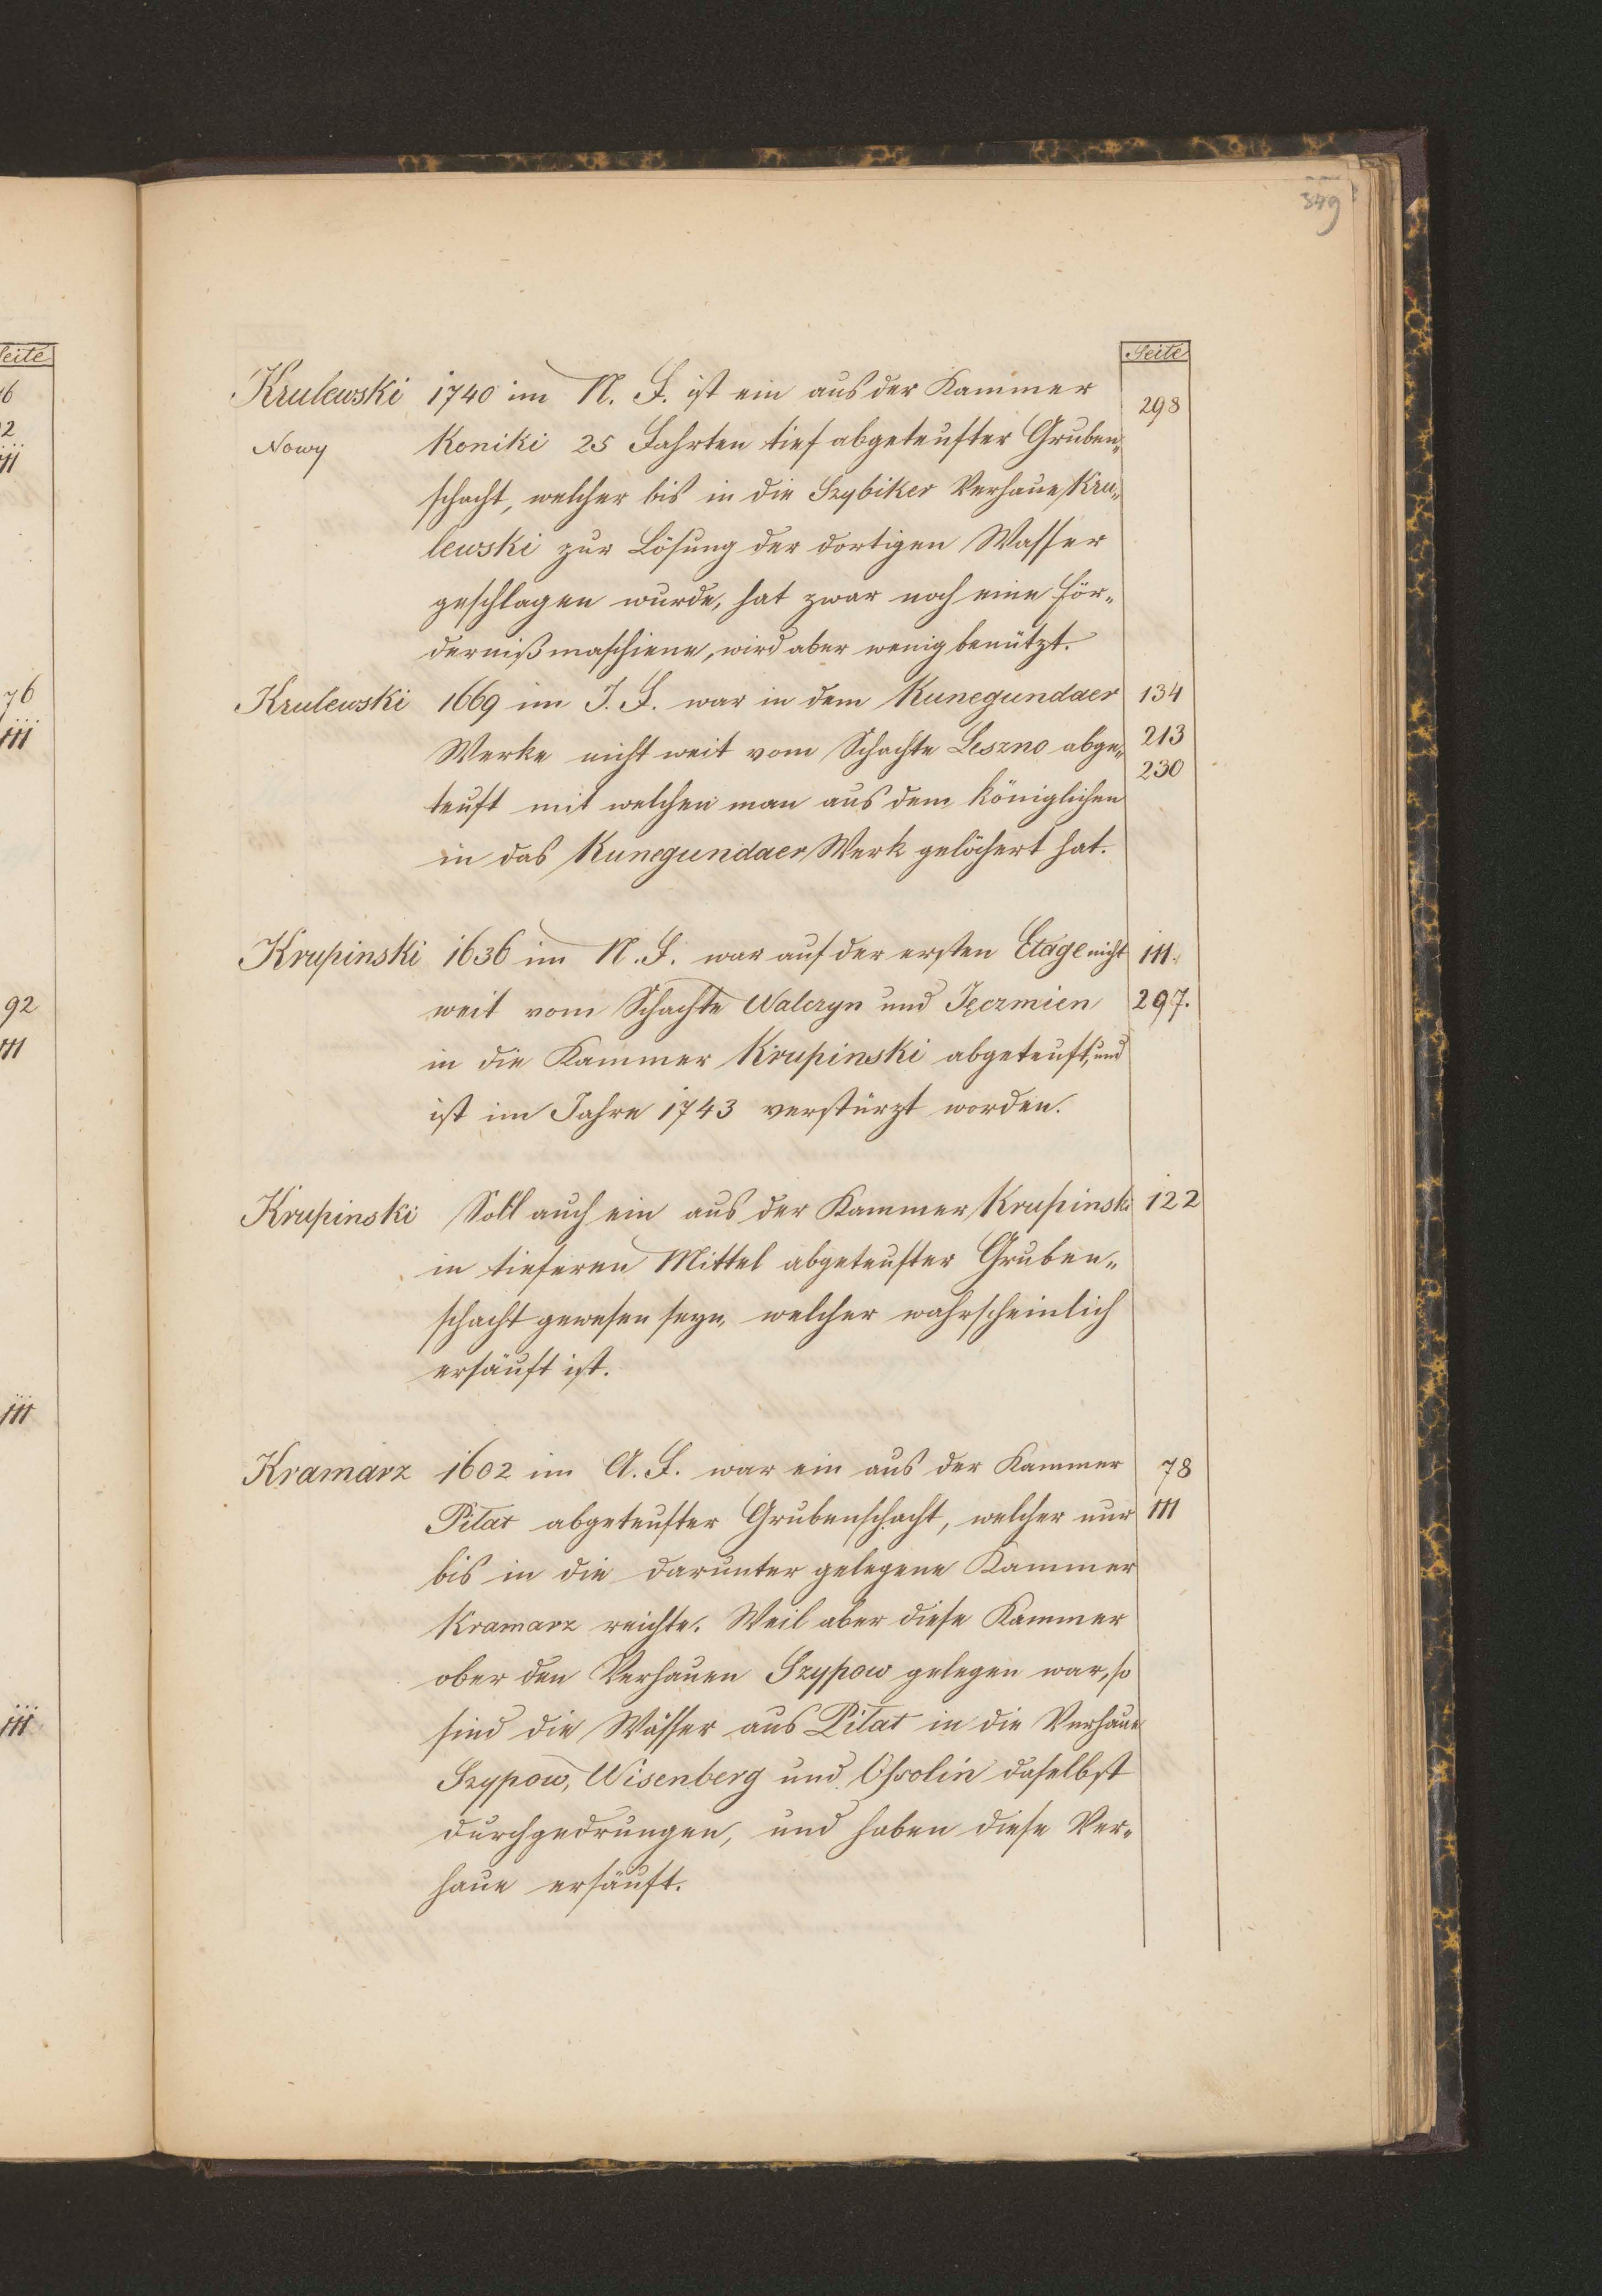 349
Seite
Krulewski 1740 im N. F. ist ein aus der Kammer 298
Nowy Koniki 25 Fahrten tief abgeteufter Gruben„
schacht, welcher bis in die Szybiker Verhaue Kru„
lewski zur Lösung der dortigen Wasser
geschlagen wurde, hat zwar noch eine För„
dernißmaschiene, wird aber wenig benützt.
Krulewski 1669 im J. F. war in dem Kunegundaer 134
Werke nicht weit vom Schachte Leszno abge„ 213
230
teuft mit welchen man aus dem königlichen
in das Kunegundaer Werk gelöchert hat.
Krupinski 1636 im N. F. war auf der ersten Etage nicht 111.
weit vom Schachte Walczyn und Jęczmien 297.
in die Kammer Krupinski abgeteuft, und
ist im Jahre 1743 verstürzt worden.
Krupinski Soll auch ein aus der Kammer Krupinski 122
in tieferen Mittel abgeteufter Gruben„
schacht gewesen seyn, welcher wahrscheinlich
ersäuft ist.
Kramarz 1602 im A. F. war ein aus der Kammer 78
Pilat abgeteufter Grubenschacht, welcher nur 111
bis in die darunter gelegene Kammer
Kramarz reichte. Weil aber diese Kammer
ober den Verhauen Szypow gelegen war, so
sind die Wässer aus Pilat in die Verhaue
Szypow, Wisenberg und Ossolin daselbst
durchgedrungen, und haben diese Ver„
haue ersäuft.